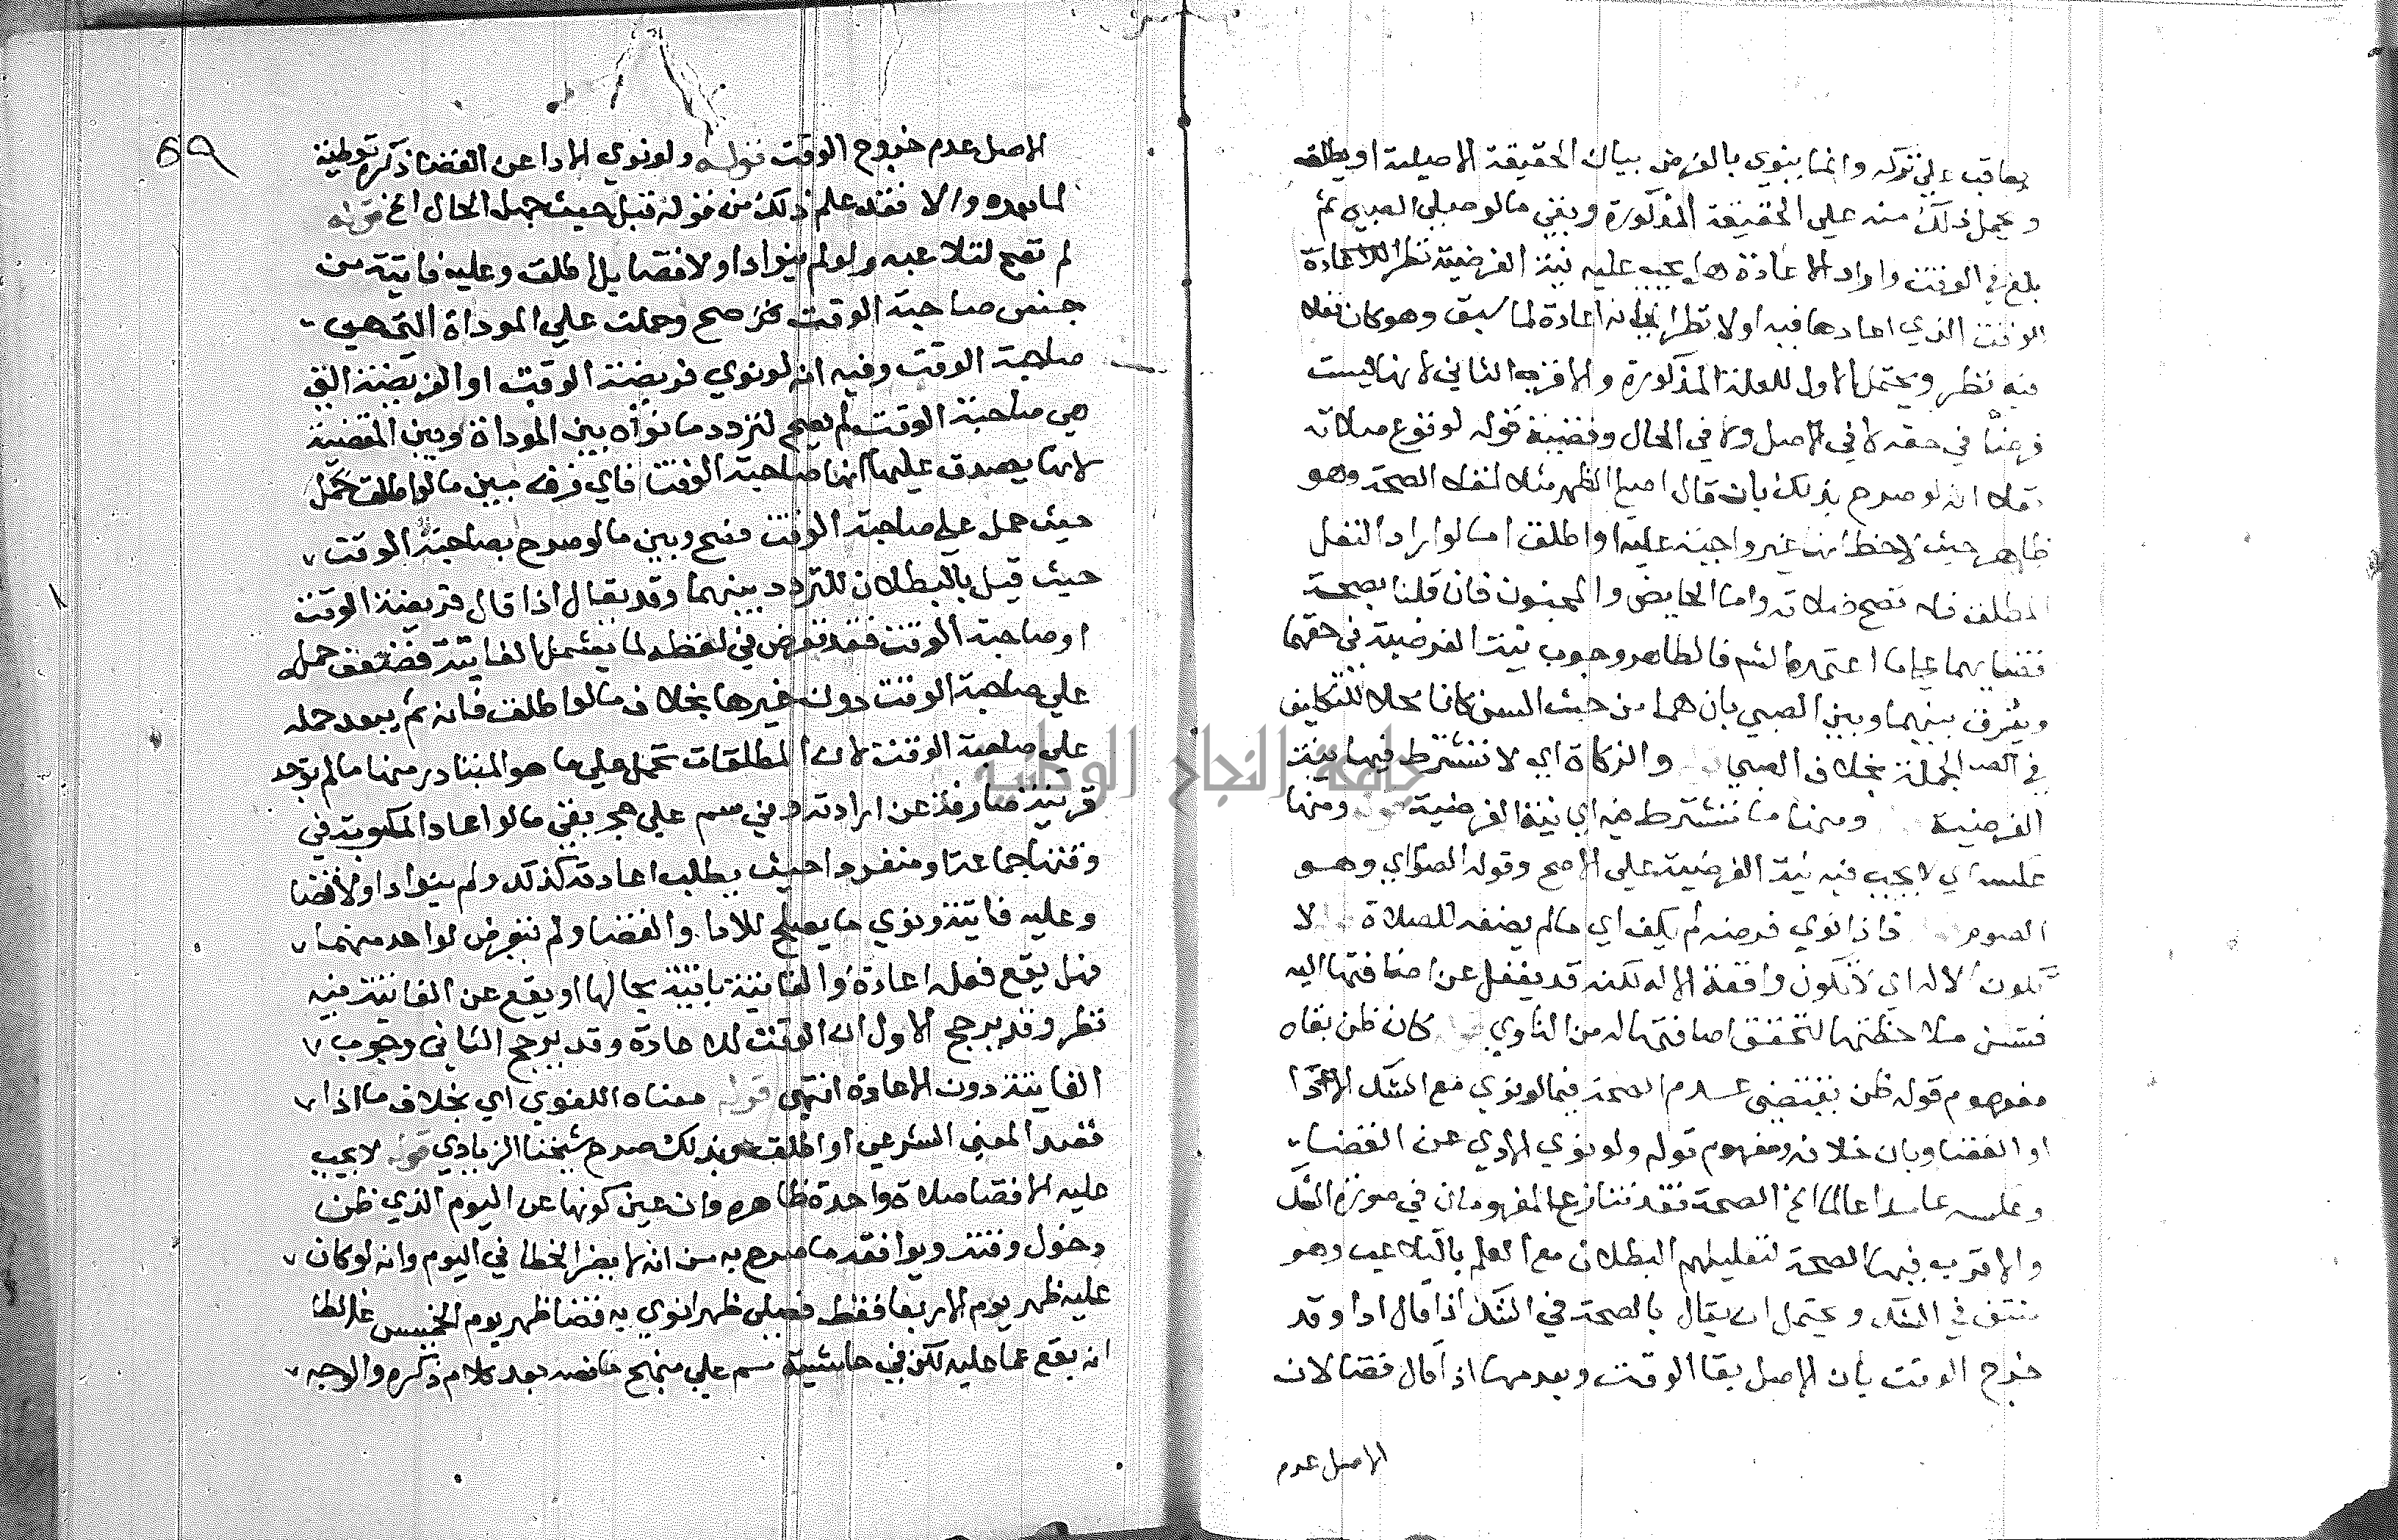 يعاقب علي تركه وانما ينوي بالفرض بيان الحقيقة الاصلية او يطلقه
ويحمل ذلك منه علي الحقيقة المذكورة وبقي ما لو صلي الصبي ثم
بلغ في الوقت واراد الاعادة هل يجب عليه نية الفرضية نظرا للاعادة
الوقت الذي اعادها فيه اولا نظرا لانه اعادة لما سبق وهو كان نفلا
فيه نظر ويحتمل الاول للعلة المذكورة والاقرب الثاني لانها ليست
فرضا في حقه لا في الاصل ولا في الحال وقضية قوله لوقوع صلاته
نفلا انه لو صرح بذلك بان قال اصلي الظهر مثلا نفلا الصحة وهو
ظاهر حيث لاحظ انها غير واجبة عليه او اطلق اما لو اراد النفل
المطلق فلا تصح صلاته واما الحايض والمجنون فان قلنا بصحة
قضايهما علي ما اعتمده الشم فالظاهر وجوب نية الفرضية في حقهما
ويفرق بينهما وبين الصبي بان هما من حيث السن كانا محلا للتكليف
في الجملة بخلاف الصبي والزكاة اي لا تشترط فيها نية
الفرضية ومنها ما تشترط فيه اي نية الفرضية ومنها
عكسه اي لا يجب فيه نية الفرضية علي الاصح وقوله الصواي وهو
الصوم فاذا نوي فرضه لم يكف اي ما لم يضفه للصلاة لا
تكون الا له اي لا تكون واقعة الا له لكنه قد يغفل عن اضافتها اليه
فتسن ملاحظتها لتحقق اضافتها له من الناوي كان ظن بقاه
مفهوم قوله ظن يقتضي عدم الصحة فيما لو نوي مع الشك الادا
او القضا وبان خلافه ومفهوم قوله ولو نوي الادي عن القضا
وعكسه عامدا عالما الخ الصحة فقد تنازع المفهومان في صورة الشك
والاقرب فيها الصحة لتعليلهم البطلان مع العلم بالتلاعب وهو
منتف في الشك ويحتمل ان يقال بالصحة في الشك اذا قال ادا وقد
خرج الوقت بان الاصل بقا الوقت وبعدمها اذا قال قضا لان
الاصل عدم
٥٩
الاصل عدم خروج الوقت قوله ولو نوي الادا عن القضا ذكره توطية
لما بعده والا فقد علم ذلك من قوله قبل حيث جهل الحال الخ قوله
لم تصح لتلاعبه ولو لم ينو ادا ولا قضا بل اطلق وعليه فايتة من
جنس صاحبة الوقت صح وحملت علي الموداة التي هي
صاحبة الوقت وفيه انه لو نوي فريضة الوقت او الفريضة التي
هي صاحبة الوقت لم يصح لتردد ما نواه بين الموداة وبين المقضية
لانها يصدق عليها انها صاحبة الوقت فاي فرق بين ما لو اطلق
حيث حمل علي صاحبة الوقت فصح وبين ما لو صرح بصاحبة الوقت
حيث قيل بالبطلان للتردد بينهما وقد يقال اذا قال فريضة الوقت
او صاحبة الوقت فقد تعرض في لفظه لما يشمل الفايتة فضعف حمله
علي صاحبة الوقت دون غيرها بخلاف ما لو اطلق فانه لم يبعد حمله
علي صاحبة الوقت لان المطلقات تحمل علي ما هو المتبادر منها ما لم توجد
قرينة صارفة عن ارادته وفي سم علي حجر بقي ما لو اعاد المكتوبة في
وقتها جماعة او منفردا حيث يطلب اعادته كذلك ولم ينو ادا ولا قضا
وعليه فايتة ونوي ما يصلح للادا والقضا ولم يتعرض لواحد منهما
فهل يقع فعله اعادة والفايتة باقية بحالها او يقع عن الفايتة فيه
نظر وقد يرجح الاول ان الوقت للاعادة وقد يرجح الثاني وجوب
الفايتة دون الاعادة انتهي قوله معناه اللغوي اي بخلاف ما اذا
قصد المعني الشرعي او اطلق وبذلك صرح شيخنا الزيادي قوله لا يجب
عليه الا قضا صلاة واحدة ظاهره وان عين كونها عن اليوم الذي ظن
دخول وقته ويوافقه ما صرح به من انه لا يضر الخطا في اليوم وانه لو كان
عليه ظهر يوم الاربعا فقط فصلي ظهرا نوي به قضا ظهر يوم الخميس غالطا
انه يقع عما عليه لكن في حاشية سم علي منهج ما نصه بعد كلام ذكره والوجه
جامعة النجاح الوطنية